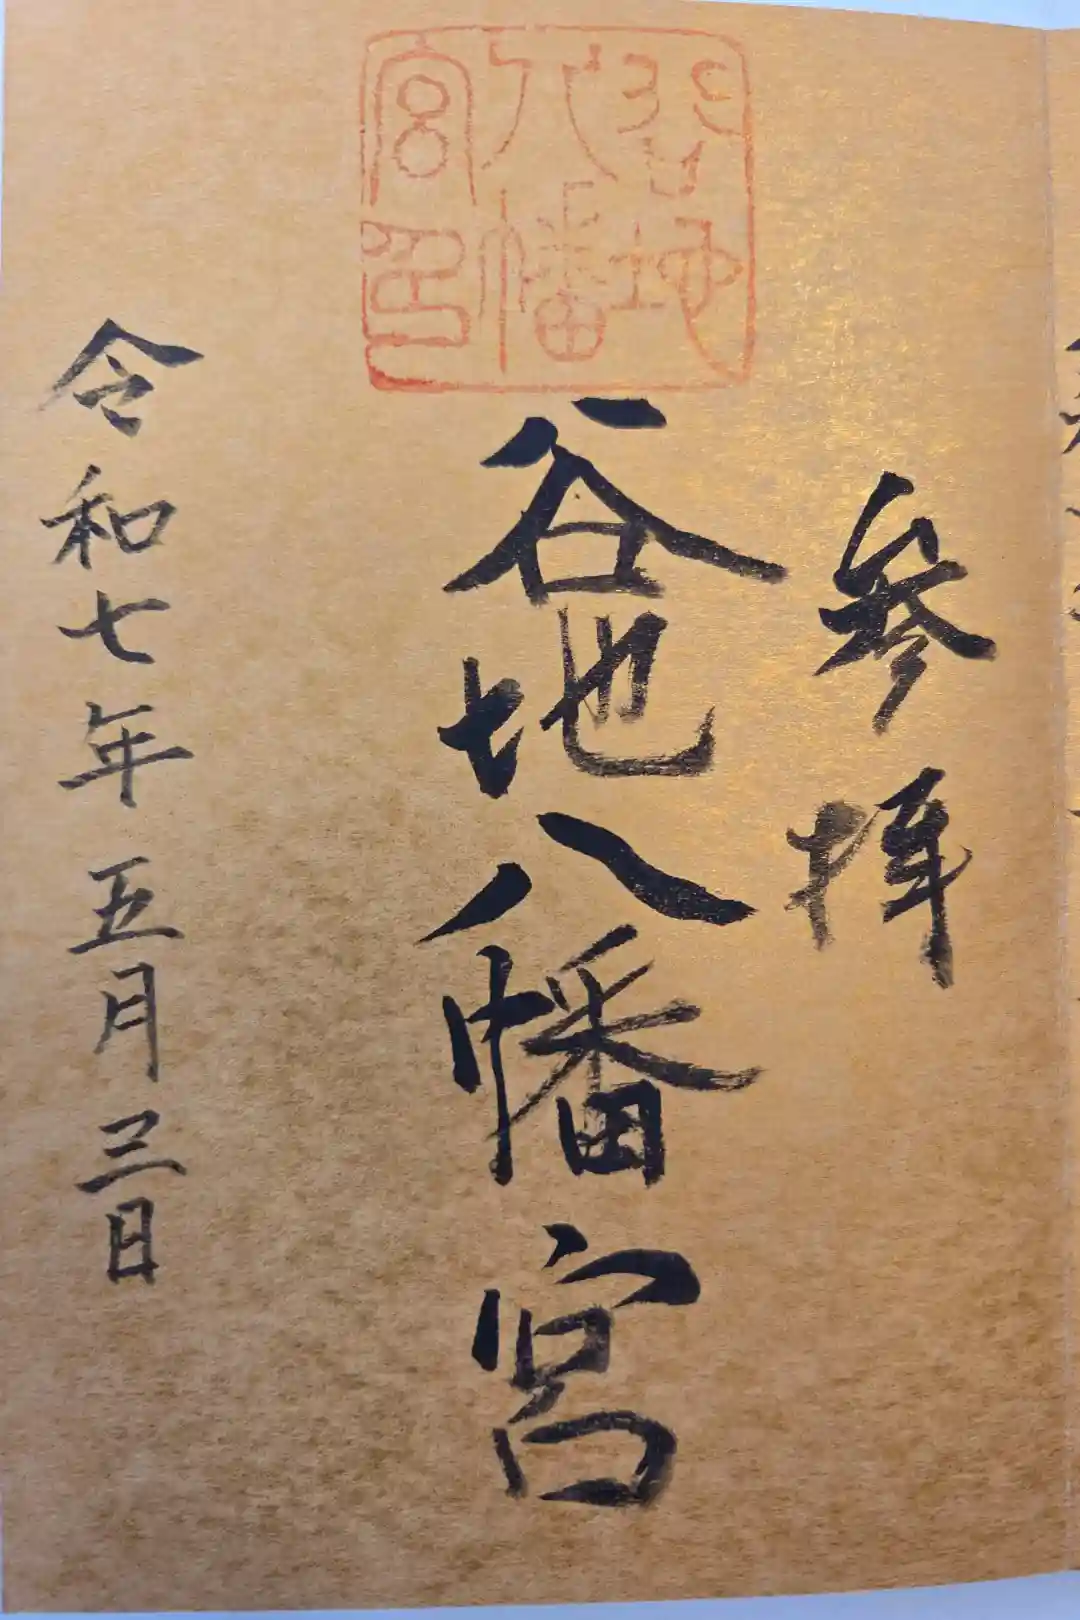 参拝
谷地八幡宮
令和七年五月三日
谷地
八幡
宮印